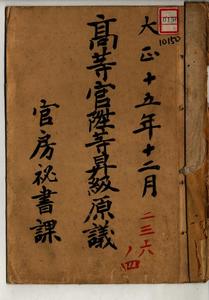 大正十五年十二月
10150
高等官陞等昇級原議
二三六ノ四
官房祕書課